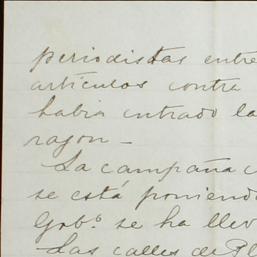 periodistas entre
artículos contra
habia entrado la
razon —
La campaña
se está poniendo
Gob.º se ha llev
Las calles de Pl